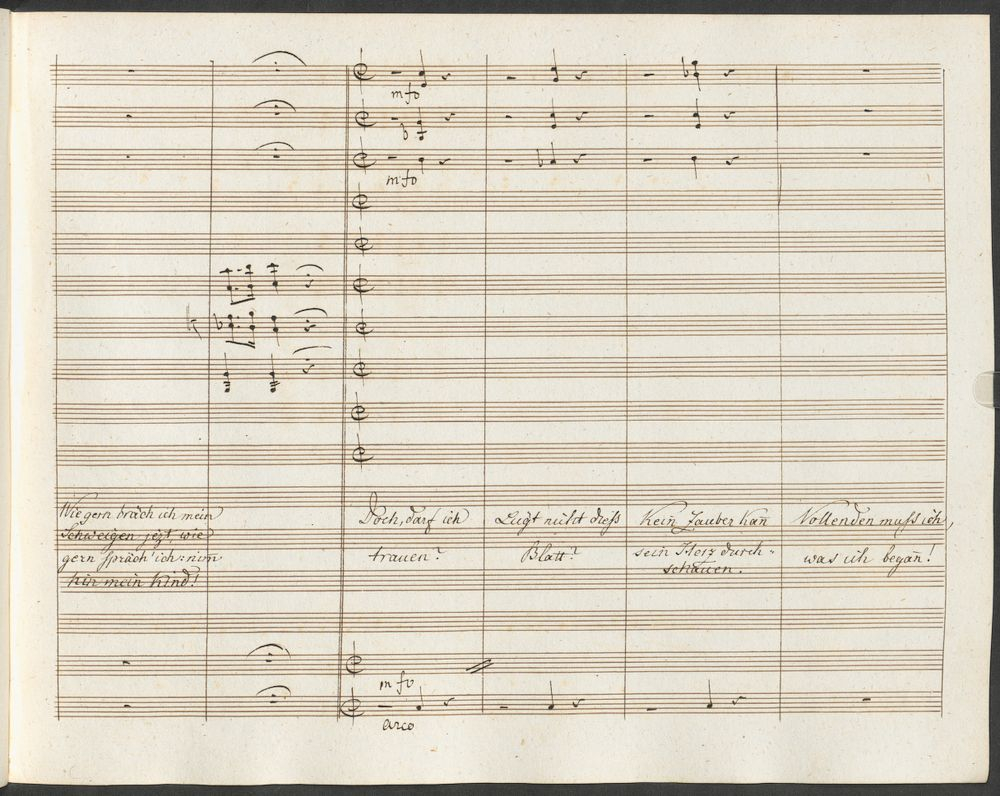 mfo
mfo
Wie gern bräch ich mein
Schweigen jezt, wie
gern spräch ich: nim
hin mein Kind!
Doch, darf ich
trauen?
Lügt nicht dieß
Blatt?
Kein Zauber kan
sein Herz durch=
schauen.
Vollenden muß ich,
was ich began̄!
mfo
arco